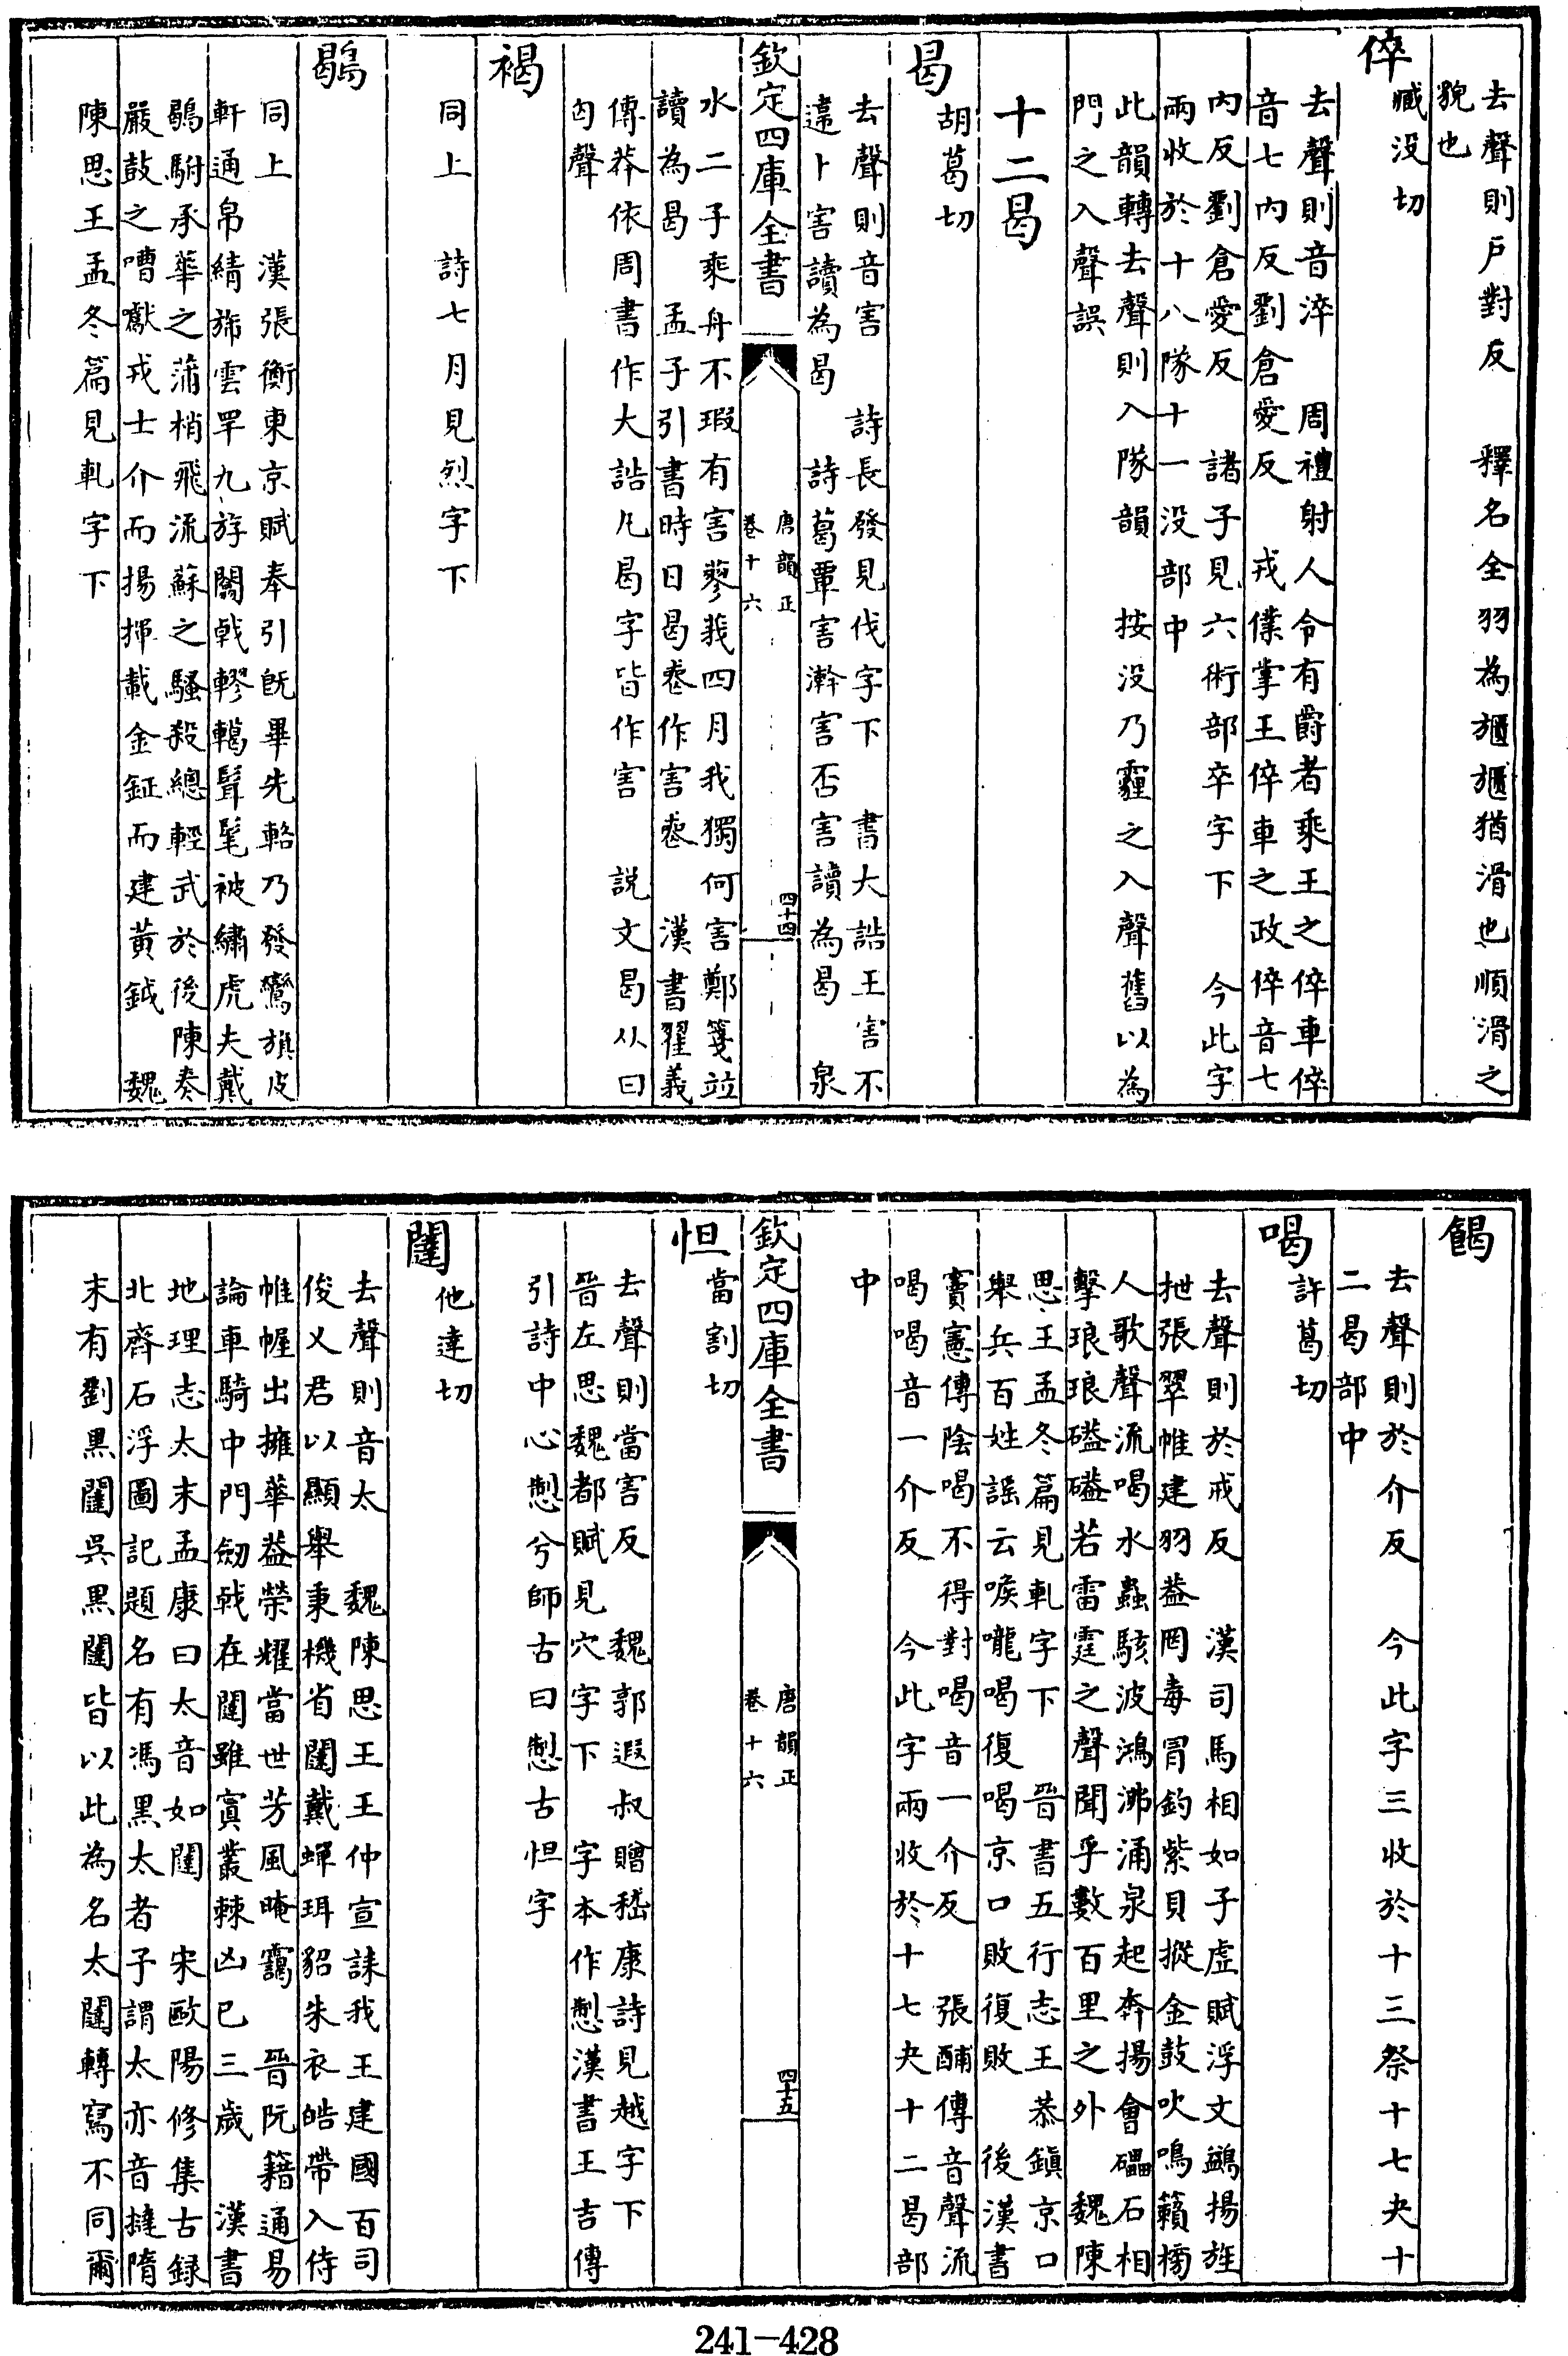 去聲則戶對反　釋名全羽為𣄴𣄴猶滑也順滑之
貌也
倅
臧沒切
去聲則音淬　周禮射人令有爵者乘王之倅車倅
音七內反劉倉愛反　戎僕掌王倅車之政倅音七
內反劉倉愛反　諸子見六術部卒字下　今此字
兩收於十八隊十一沒部中
此韻轉去聲則入隊韻　按沒乃霾之入聲舊以為
門之入聲誤
十二曷
曷
胡葛切
去聲則音害　詩長發見伐字下　書大誥王害不
違卜害讀為曷　詩葛覃害澣害否害讀為曷　泉
欽定四庫全書
唐韻正
卷十六
四十四
水二子乘舟不瑕有害蓼莪四月我獨何害鄭箋竝
讀為曷　孟子引書時日曷喪作害喪　漢書翟義
傳莽依周書作大誥凡曷字皆作害　説文曷从曰
匃聲
褐
同上　詩七月見烈字下
鶡
同上　漢張衡東京賦奉引旣畢先輅乃發鸞旗皮
軒通帛綪斾雲罕九斿闟戟轇輵髶髦被繡虎夫戴
鶡駙承華之蒲梢飛流蘇之騷殺總輕武於後陳奏
嚴鼓之嘈囐戎士介而揚揮載金鉦而建黃鉞　魏
陳思王孟冬篇見軋字下
餲
去聲則於介反　今此字三收於十三祭十七夬十
二曷部中
喝
許葛切
去聲則於戒反　漢司馬相如子虛賦浮文鷁揚旌
抴張翠帷建羽葢罔毒冒釣紫貝摐金鼓吹鳴籟榜
人歌聲流喝水蟲駭波鴻沸涌泉起奔揚會礧石相
擊琅琅礚礚若雷霆之聲聞乎數百里之外　魏陳
思王孟冬篇見軋字下　晉書五行志王恭鎭京口
舉兵百姓謡云喉嚨喝復喝京口敗復敗　後漢書
竇憲傳陰喝不得對喝音一介反　張酺傳音聲流
喝喝音一介反　今此字兩收於十七夬十二曷部
中
欽定四庫全書
唐韻正
卷十六
四十五
怛
當割切
去聲則當害反　魏郭遐叔贈嵇康詩見越字下
晉左思魏都賦見穴字下　字本作㤠漢書王吉傳
引詩中心㤠兮師古曰㤠古怛字
闥
他達切
去聲則音太　魏陳思王王仲宣誄我王建國百司
俊乂君以顯舉秉機省闥戴蟬珥貂朱衣皓帶入侍
帷幄出擁華葢榮耀當世芳風晻藹　晉阮籍通易
論車騎中門劒戟在闥雖寘叢棘凶已三歲　漢書
地理志太末孟康曰太音如闥　宋歐陽修集古録
北齊石浮圖記題名有馮黑太者子謂太亦音撻隋
末有劉黒闥吳黒闥皆以此為名太闥轉寫不同爾
241-428